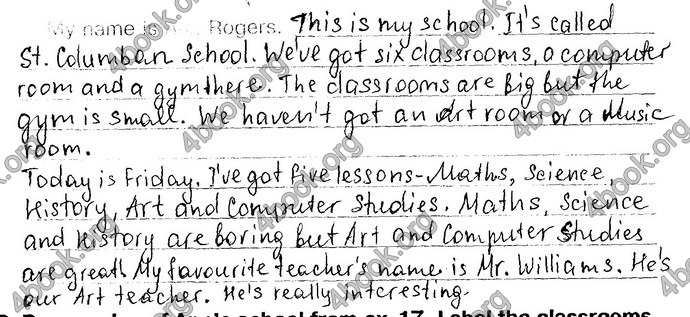 My name is Rogers. This is my school. It's called
St. Columban School. We've got six classrooms, a computer
room and a gym there. The classrooms are big but the
gym is small. We haven't got an Art room or a Music
room.
Today is Friday. I've got five lessons - Maths, Science,
History, Art and Computer Studies. Maths, Science
and History are boring but Art and Computer Studies
are great! My favourite teacher's name is Mr. Williams. He's
our Art teacher. He's really interesting.
school from ex. 17. Label the classrooms
4book.org
4book.org
4book.org
4book.org
4book.org
4book.org
4book.org
4book.org